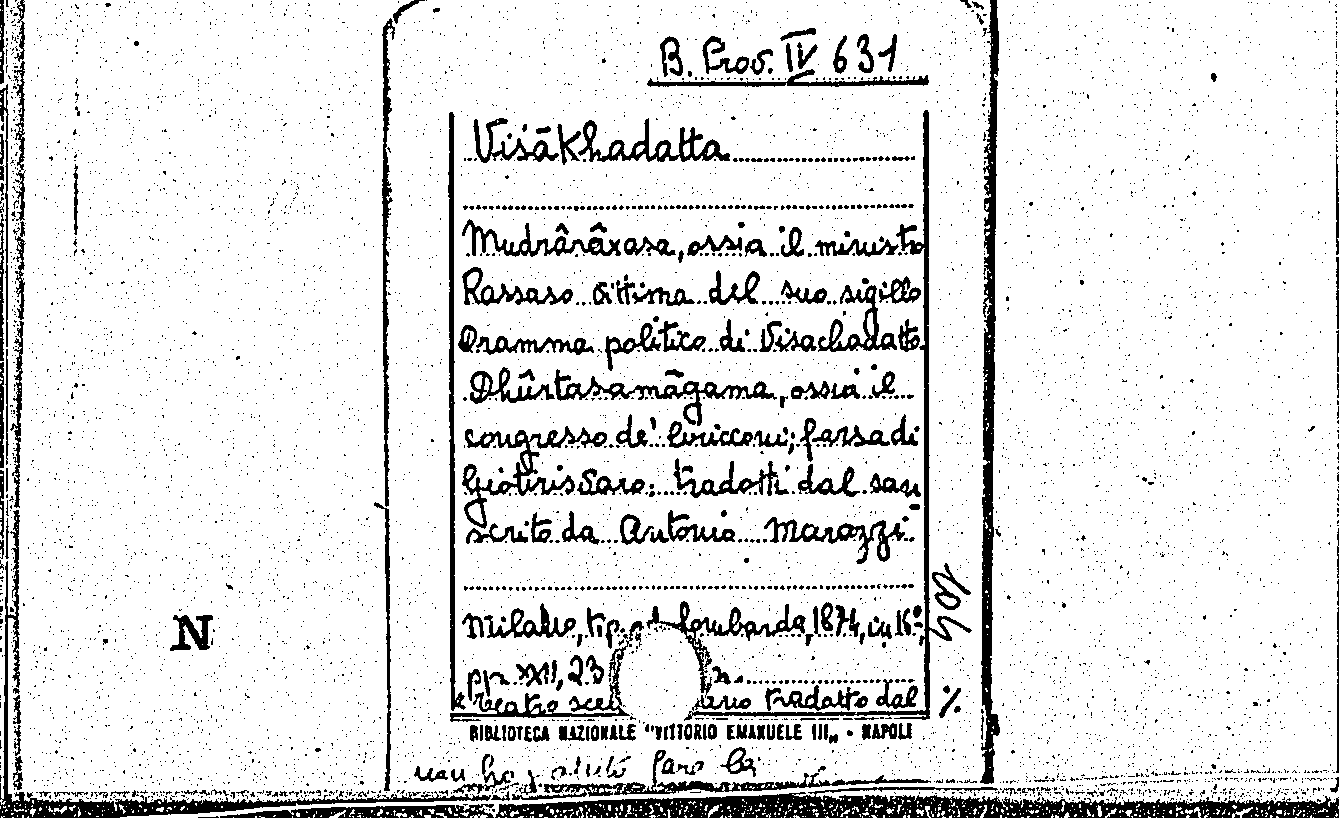 B. Prov. IV 631
Visākhadatta
Mudrârâxasa, ossia il ministro
Rassaso vittima del suo sigillo
Dramma politico di Visachadatto.
Dhûrtasamāgama, ossia il
congresso de' bricconi; farsa di
Giotirissaro: tradotti dal san
scrito da Antonio Marazzi.
Milano, tip. ed. Lombarda, 1874, in 16º,
104
pp. XXII, 23
N
"Teatro tradotto dal %
BIBLIOTECA NAZIONALE "VITTORIO EMANUELE III„ - NAPOLI